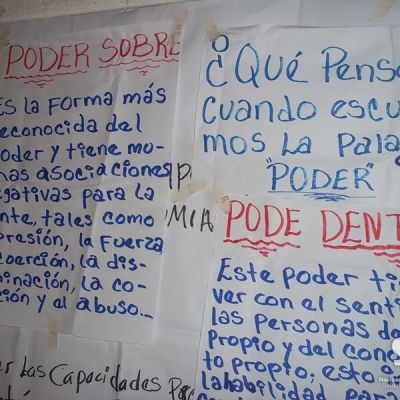 PODER SOBRE
Es la forma más
reconocida del
poder y tiene mu-
chas asociaciones
negativas para la
ente, tales como
presión, la fuerza,
coerción, la dis-
minación, la co-
ción y el abuso...
¿Qué Pensa
cuando escu
mos La Pala
"PODER"
MIA
PODE DENT
Este poder ti
ver con el senti
las personas de
propio y del cono
to propio; esto
la habilidad para
er Las Capacidades